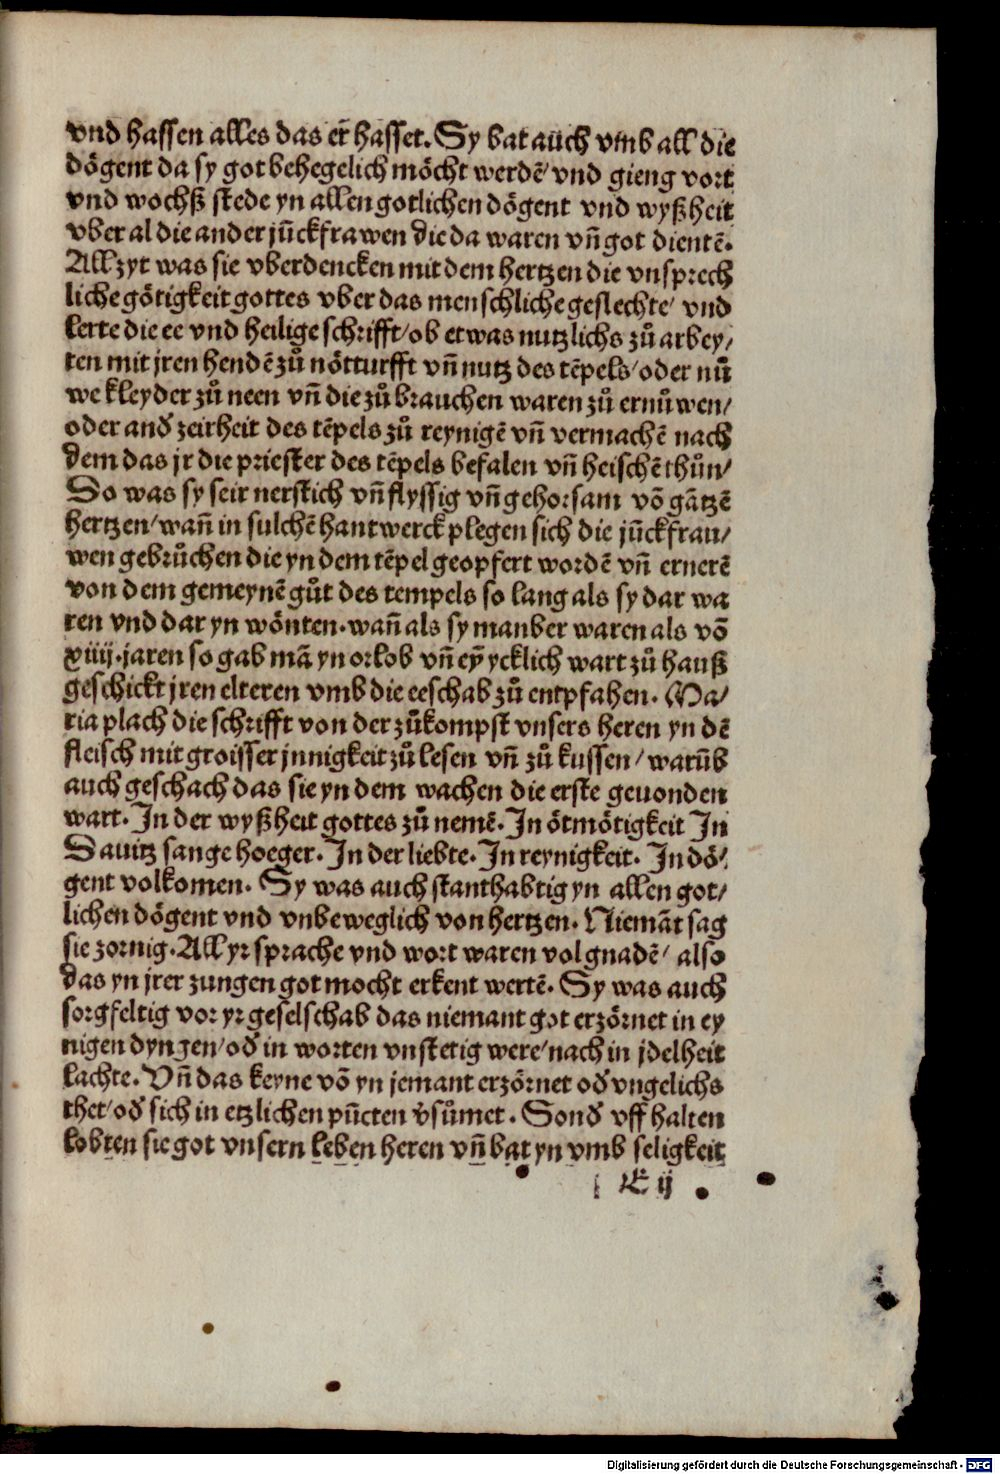 vnd hassen alles das er̃ hasset. Sy bat auch vmb all die
dögent da sy got behegelich möcht werdē vnd gieng vort
vnd wochß stede yn allen gotlichen dögent vnd wyßheit
vber al die ander jūckfrawen die da waren vñ got dientē.
All zyt was sie vberdencken mit dem hertzen die vnsprech
liche götigkeit gottes vber das menschliche geslechte/ vnd
lerte die ee vnd heilige schrifft/ ob etwas nutzlichs zů arbey/
ten mit jren hendē zů nötturfft vñ nutz des tēpels/ oder nů
we kleyder zů neen vñ die zů brauchen waren zů ernůwen/
oder and̄ zeirheit des tēpels zů reynigē vñ vermachē nach
dem das jr die priester des tēpels befalen vñ heischē thůn/
So was sy seir nerstich vñ flyssig vñ gehorsam vō gātzē
hertzen/ wañ in sulchē hantwerck plegen sich die jūckfrau/
wen gebrůchen die yn dem tēpel geopfert wordē vñ ernerē
von dem gemeynē gůt des tempels so lang als sy dar wa
ren vnd dar yn wönten. wañ als sy manber waren als vō
xiiij. jaren so gab mā yn orlob vñ eyn̄ ycklich wart zů hauß
geschickt jren elteren vmb die eeschab zů entpfahen. Ma/
ria plach die schrifft von der zůkompst vnsers heren yn dē
fleisch mit groisser jnnigkeit zů lesen vñ zů kussen/ warūb
auch geschach das sie yn dem wachen die erste gevonden
wart. In der wyßheit gottes zů nemē. In ötmötigkeit In
Dauitz sange hoeger. In der liebte. In reynigkeit. In dö/
gent volkomen. Sy was auch stanthabtig yn allen got/
lichen dögent vnd vnbeweglich von hertzen. Niemāt sag
sie zornig. All yr sprache vnd wort waren vol gnadē/ also
das yn jrer zungen got mocht erkent wertē. Sy was auch
sorgfeltig vor yr geselschab das niemant got erzörnet in ey
nigen dyngen/ od̄ in worten vnstetig were/ nach in jdelheit
lachte. Vñ das keyne vō yn jemant erzörnet od̄ vngelichs
thet/ od̄ sich in etzlichen pūcten v̄sůmet. Sond̄ vff halten
lobten sie got vnsern leben heren vñ bat yn vmb seligkeit
E ij
Digitalisierung gefördert durch die Deutsche Forschungsgemeinschaft - DFG